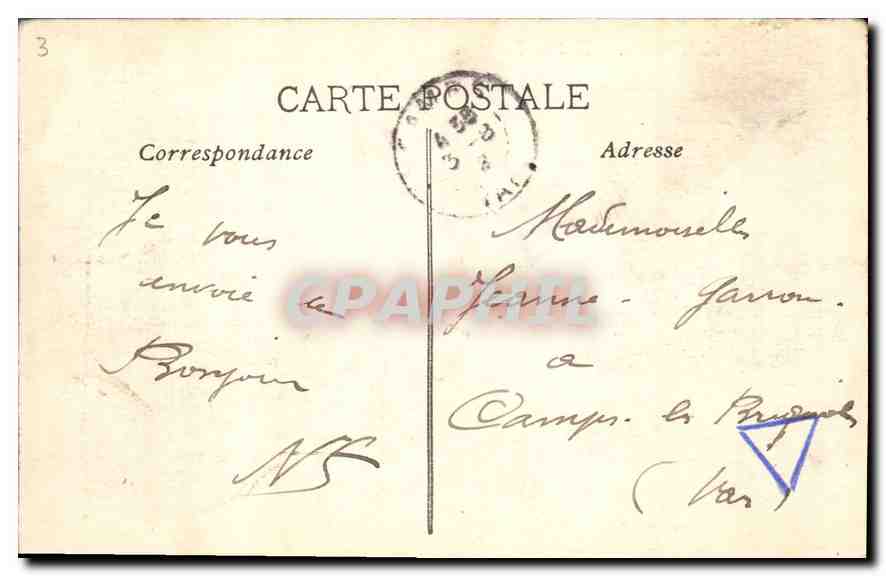 3
CARTE POSTALE
Correspondance
Adresse
Je vous
envoie ce
Bonjour
Mademoiselle
Jeanne Garron.
a
Camps les Brignoles
(Var)
CPAPHIL